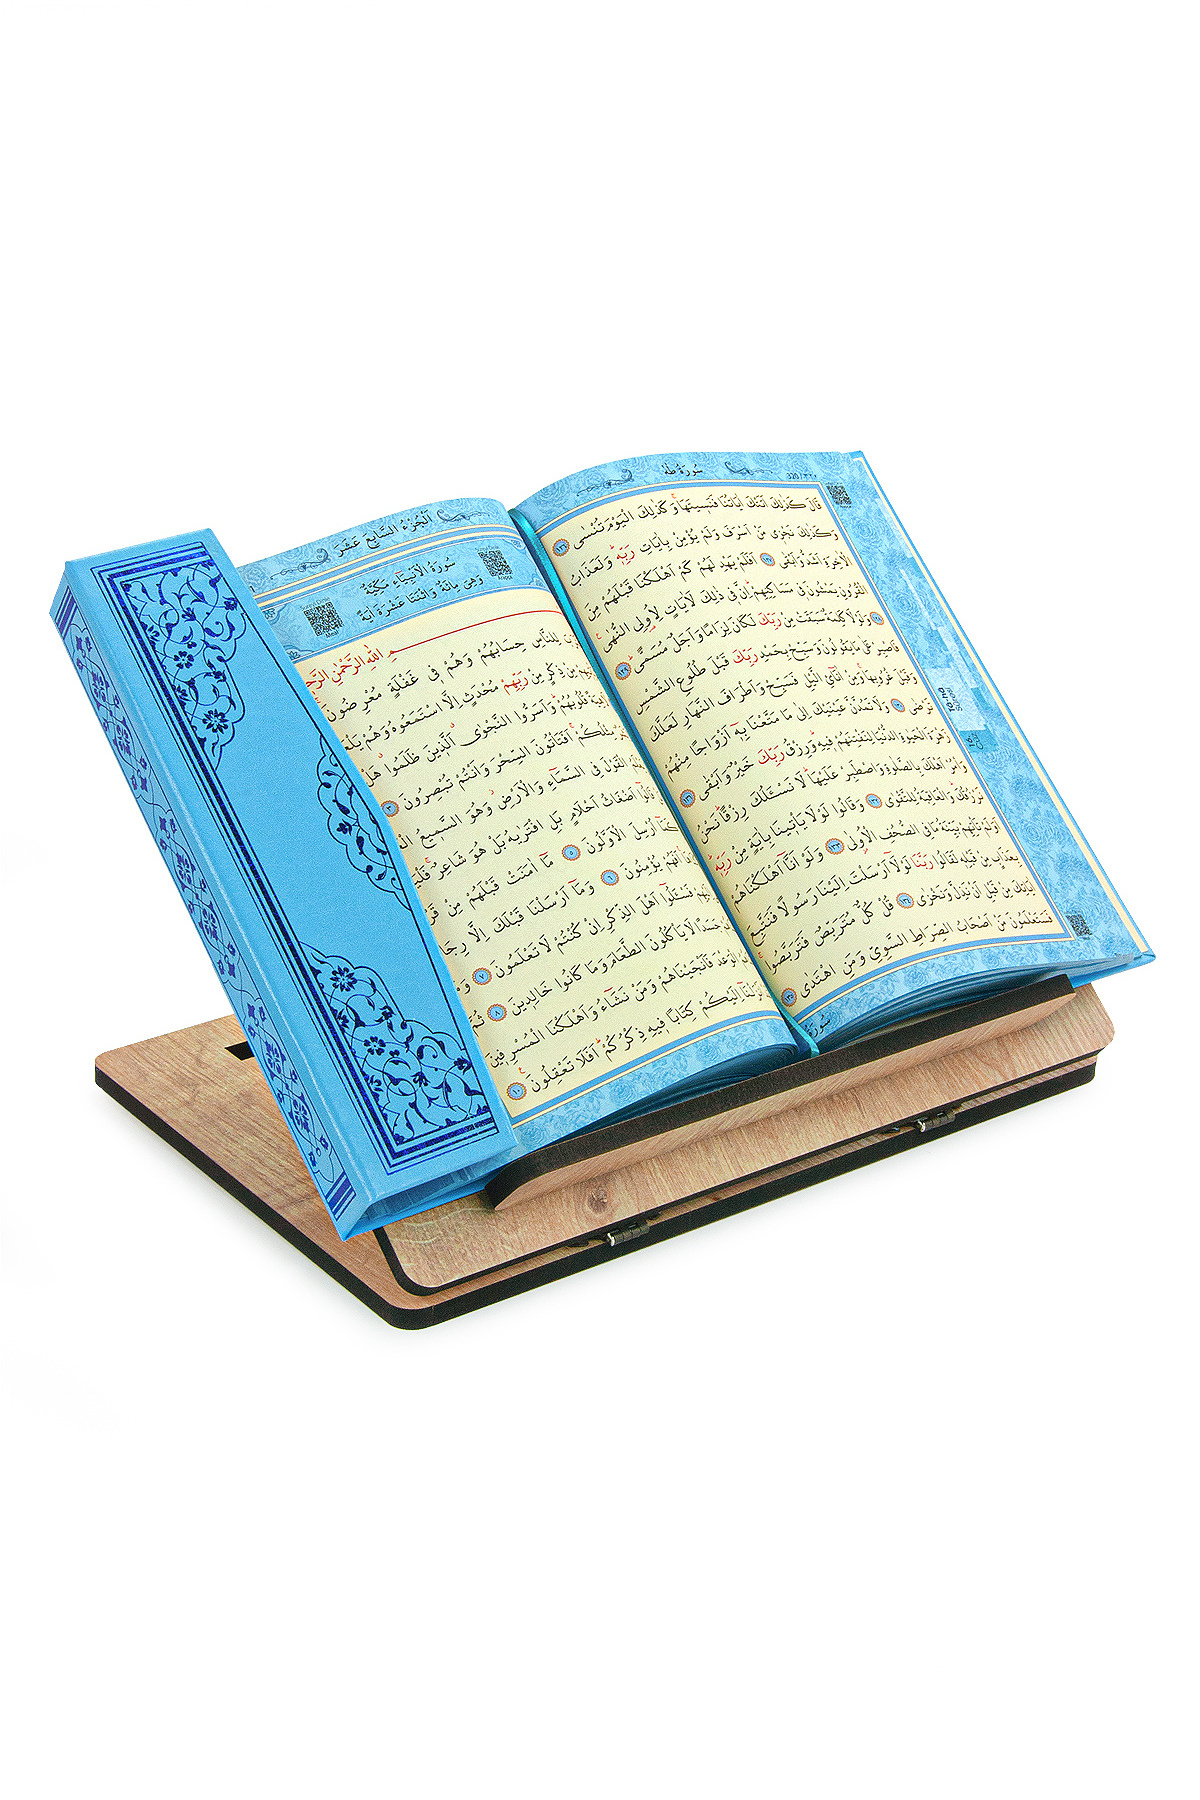 سُورَةُ طٰهٰ
٣٢٠ / 320
قَالَ كَذٰلِكَ اَتَتْكَ اٰيَاتُنَا فَنَسٖيتَهَاۚ وَكَذٰلِكَ الْيَوْمَ تُنْسٰى ١٢٦
وَكَذٰلِكَ نَجْزٖي مَنْ اَسْرَفَ وَلَمْ يُؤْمِنْ بِاٰيَاتِ رَبِّهٖؕ وَلَعَذَابُ
الْاٰخِرَةِ اَشَدُّ وَاَبْقٰى ١٢٧ اَفَلَمْ يَهْدِ لَهُمْ كَمْ اَهْلَكْنَا قَبْلَهُمْ مِنَ
الْقُرُونِ يَمْشُونَ فٖي مَسَاكِنِهِمْؕ اِنَّ فٖي ذٰلِكَ لَاٰيَاتٍ لِاُولِي النُّهٰى ١٢٨
وَلَوْلَا كَلِمَةٌ سَبَقَتْ مِنْ رَبِّكَ لَكَانَ لِزَامًا وَاَجَلٌ مُسَمًّىؕ ١٢٩
فَاصْبِرْ عَلٰى مَا يَقُولُونَ وَسَبِّحْ بِحَمْدِ رَبِّكَ قَبْلَ طُلُوعِ الشَّمْسِ
وَقَبْلَ غُرُوبِهَاۚ وَمِنْ اٰنَائِ الَّيْلِ فَسَبِّحْ وَاَطْرَافَ النَّهَارِ لَعَلَّكَ
تَرْضٰى ١٣٠ وَلَا تَمُدَّنَّ عَيْنَيْكَ اِلٰى مَا مَتَّعْنَا بِهٖٓ اَزْوَاجًا مِنْهُمْ
زَهْرَةَ الْحَيٰوةِ الدُّنْيَا لِنَفْتِنَهُمْ فٖيهِؕ وَرِزْقُ رَبِّكَ خَيْرٌ وَاَبْقٰى ١٣١
وَأْمُرْ اَهْلَكَ بِالصَّلٰوةِ وَاصْطَبِرْ عَلَيْهَاؕ لَا نَسْـَٔلُكَ رِزْقًاؕ نَحْنُ
نَرْزُقُكَؕ وَالْعَاقِبَةُ لِلتَّقْوٰى ١٣٢ وَقَالُوا لَوْلَا يَأْتٖينَا بِاٰيَةٍ مِنْ رَبِّهٖؕ
اَوَلَمْ تَأْتِهِمْ بَيِّنَةُ مَا فِي الصُّحُفِ الْاُولٰى ١٣٣ وَلَوْ اَنَّٓا اَهْلَكْنَاهُمْ
بِعَذَابٍ مِنْ قَبْلِهٖ لَقَالُوا رَبَّنَا لَوْلَٓا اَرْسَلْتَ اِلَيْنَا رَسُولًا فَنَتَّبِعَ
اٰيَاتِكَ مِنْ قَبْلِ اَنْ نَذِلَّ وَنَخْزٰى ١٣٤ قُلْ كُلٌّ مُتَرَبِّصٌ فَتَرَبَّصُواۚ
فَسَتَعْلَمُونَ مَنْ اَصْحَابُ الصِّرَاطِ السَّوِيِّ وَمَنِ اهْتَدٰى ١٣٥
اَلْجُزْءُ السَّابِعَ عَشَرَ
سُورَةُ الْاَنْبِيَاءِ مَكِّيَّةٌ
وَهِيَ مِائَةٌ وَاثْنَتَا عَشْرَةَ اٰيَةً
اللّٰهِ الرَّحْمٰنِ
لِلنَّاسِ حِسَابُهُمْ وَهُمْ فٖي غَفْلَةٍ مُعْرِضُونَ
مِنْ ذِكْرٍ مِنْ رَبِّهِمْ مُحْدَثٍ اِلَّا اسْتَمَعُوهُ وَهُمْ
قُلُوبُهُمْؕ وَاَسَرُّوا النَّجْوٰىۗ اَلَّذٖينَ ظَلَمُواۗ هَلْ
مِثْلُكُمْۚ اَفَتَأْتُونَ السِّحْرَ وَاَنْتُمْ تُبْصِرُونَ ٣
الْقَوْلَ فِي السَّمَٓاءِ وَالْاَرْضِؗ وَهُوَ السَّمٖيعُ
قَالُٓوا اَضْغَاثُ اَحْلَامٍ بَلِ افْتَرٰيهُ بَلْ هُوَ شَاعِرٌۚ
كَمَٓا اُرْسِلَ الْاَوَّلُونَ ٥ مَٓا اٰمَنَتْ قَبْلَهُمْ مِنْ
اَفَهُمْ يُؤْمِنُونَ ٦ وَمَٓا اَرْسَلْنَا قَبْلَكَ اِلَّا
فَسْـَٔلُٓوا اَهْلَ الذِّكْرِ اِنْ كُنْتُمْ لَا تَعْلَمُونَ ٧
جَسَدًا لَا يَأْكُلُونَ الطَّعَامَ وَمَا كَانُوا خَالِدٖينَ ٨
الْوَعْدَ فَاَنْجَيْنَاهُمْ وَمَنْ نَشَٓاءُ وَاَهْلَكْنَا الْمُسْرِفٖينَ
اِلَيْكُمْ كِتَابًا فٖيهِ ذِكْرُكُمْؕ اَفَلَا تَعْقِلُونَ ١٠